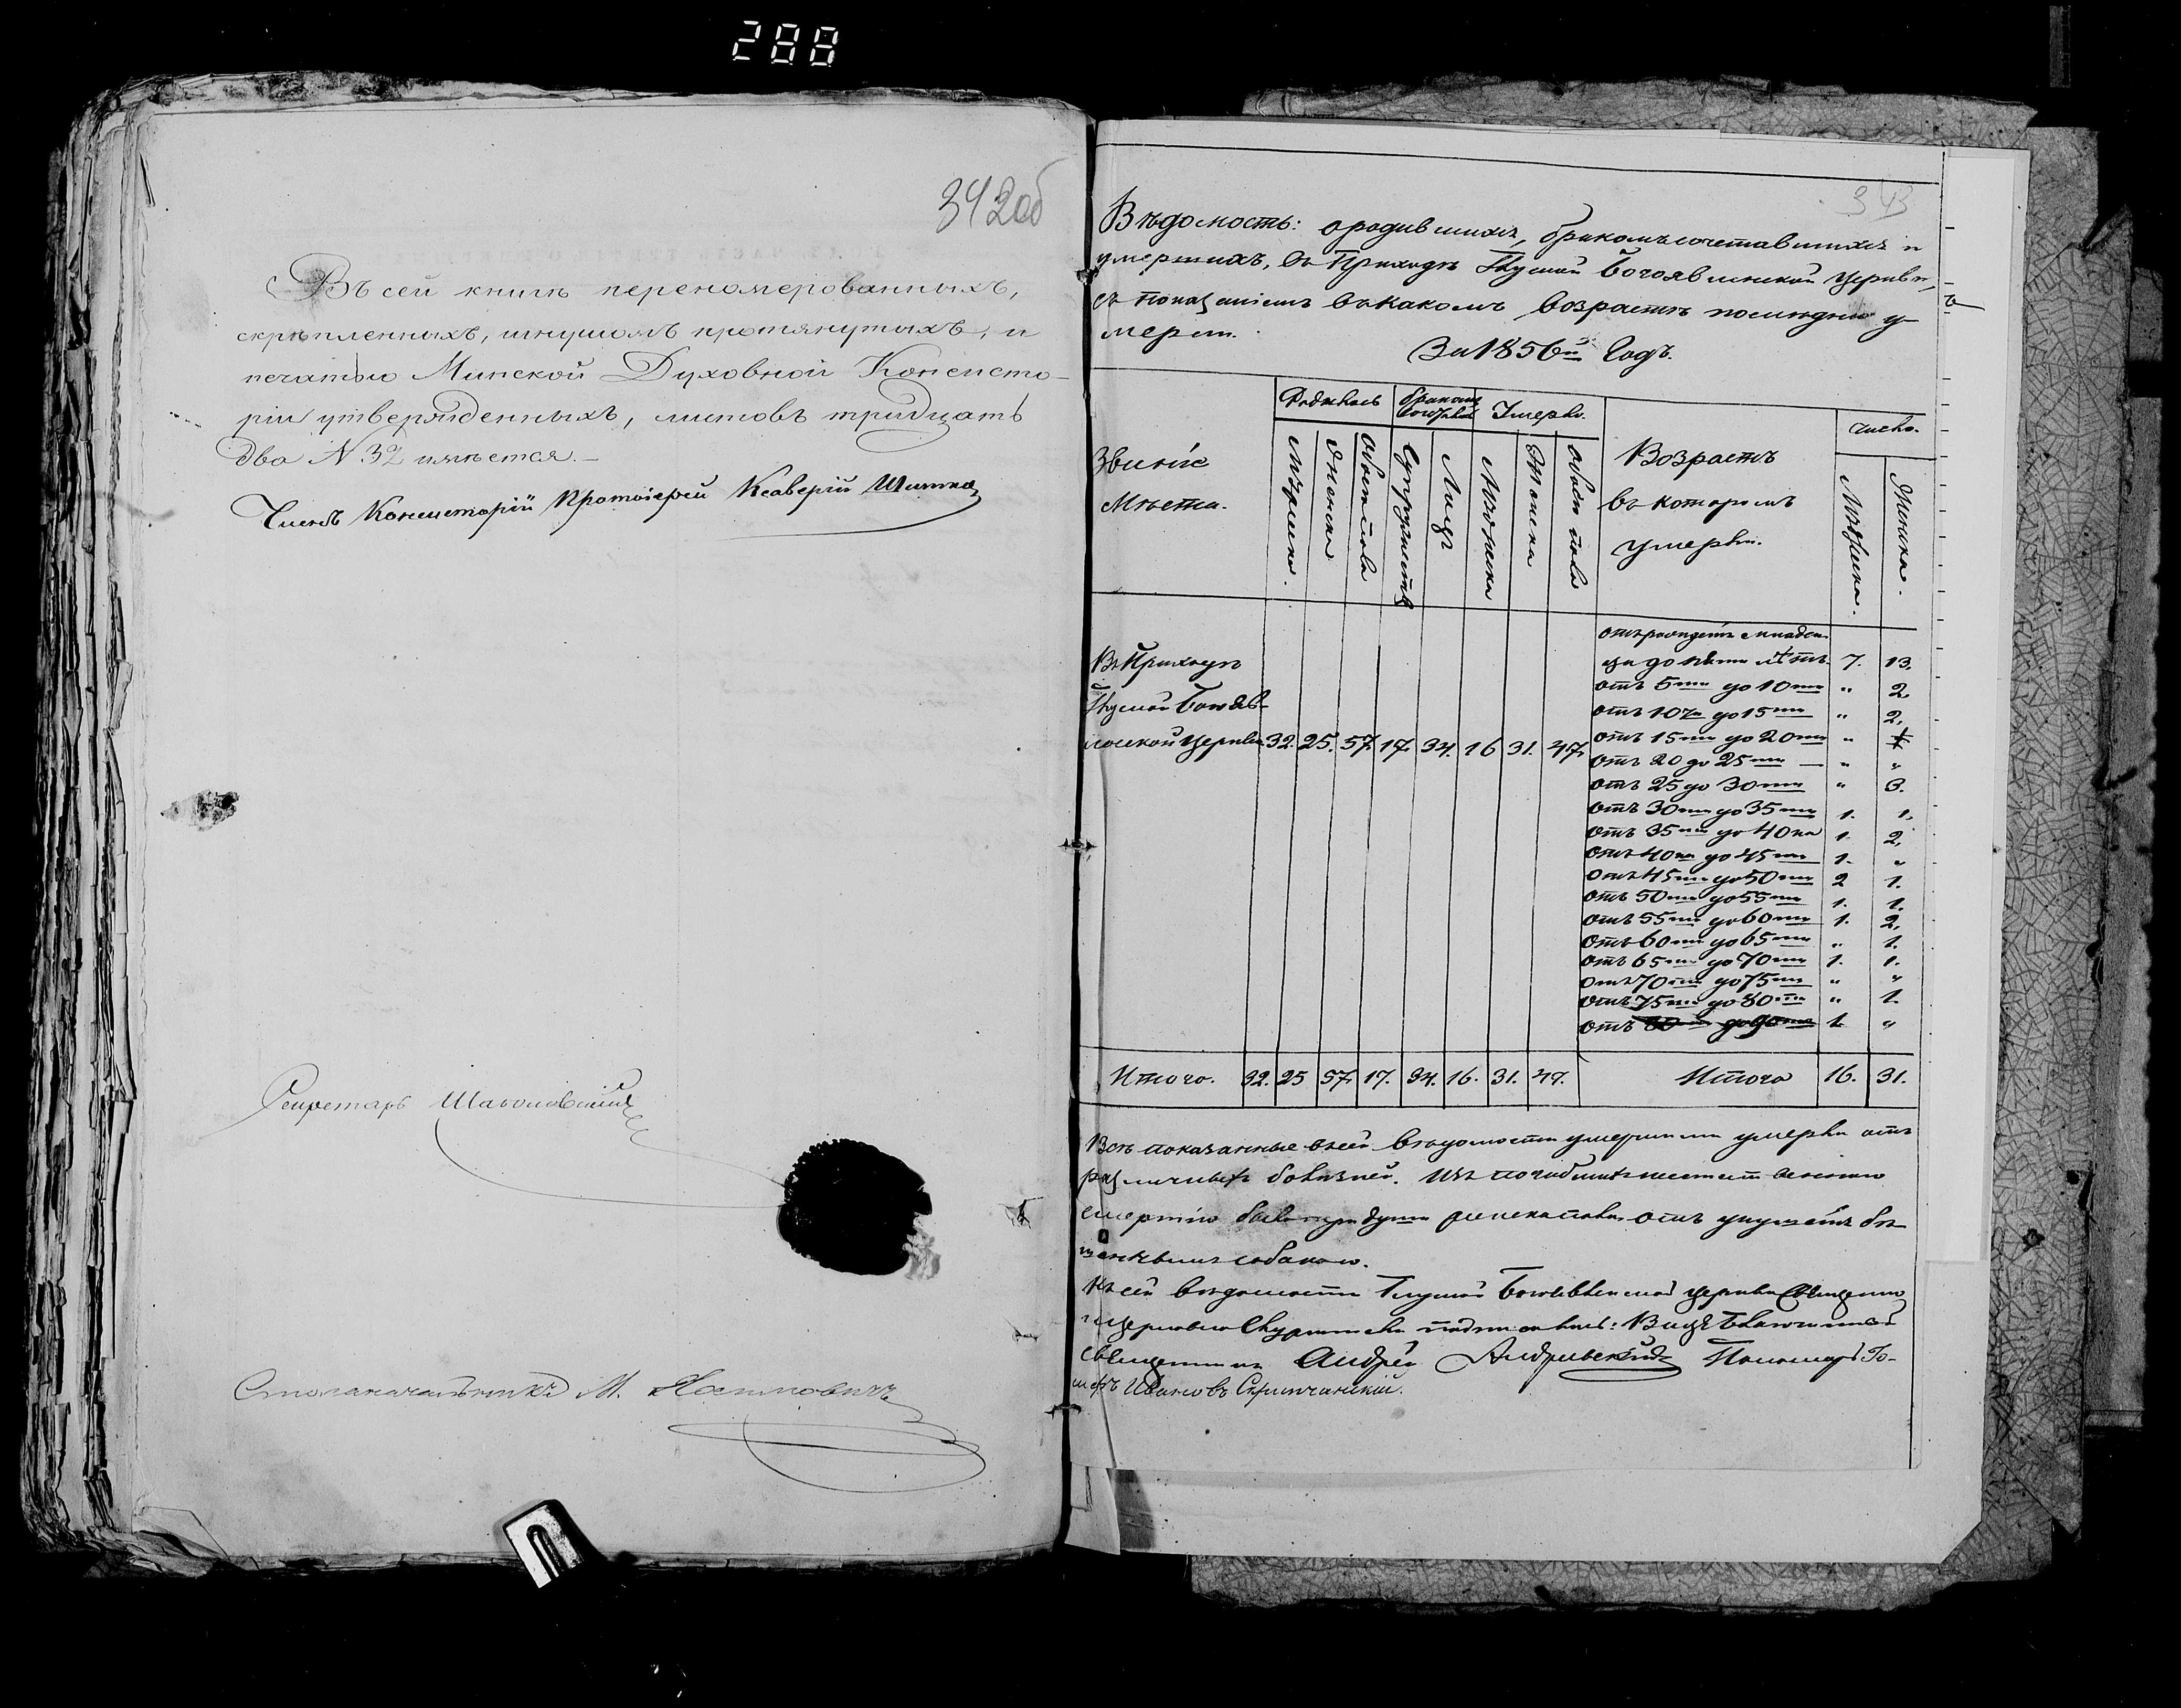 288
342об
Въ сей книгѣ переномерованныхъ,
скрѣпленныхъ, шнуромъ протянутыхъ, и
печатью Минской Духовной Консисто-
ріи утвержденныхъ, листовъ тридцать
два № 32 имѣется.—
Членъ Консисторіи Протоіерей Ксаверій
Секретарь
Столоначальникъ М.
343
Вѣдомость: о родившихся, бракомъ сочетавшихся и
умершихъ, въ Приходѣ Глуской Богоявленской Церкви,
съ показаніемъ въ какомъ возрастѣ послѣдніе у-
мерли.
За 1856й Годъ.
Званіе Мѣста.
Родилось
Мужеска.
Женска
Обоего пола
Бракомъ
Супружествъ
Лицъ
Умерло.
Мужеска
Женска
Обоего пола
Возрастъ
въ которомъ
умерли.
Число.
Мужеска.
Женска.
Въ Приходѣ
Глуской Богояв-
ленской Церкви 32. 25. 57. 17. 34. 16 31. 47.
отъ рожденія младен-
ца до пяти лѣтъ. 7. 13.
отъ 5ти до 10ти " 2
отъ 10ти до 15ти " 2.
отъ 15ти до 20ти "
отъ 20 до 25ти — " "
отъ 25 до 30ти " 3.
отъ 30ти до 35ти 1. 1.
отъ 35ти до 40ка 1. 2.
отъ 40ка до 45ти 1. "
отъ 45ти до 50ти 2 1.
отъ 50ти до 55ти 1. 1.
отъ 55ти до 60ти 1. 2.
отъ 60ти до 65ти " 1.
отъ 65ти до 70ти 1. 1.
отъ 70ти до 75ти " "
отъ 75ти до 80ти " 1.
отъ 80ти до 90та 1. "
Итого. 32. 25 57. 17. 34. 16. 31. 47. Итого 16. 31.
Всѣ показанные въ сей вѣдомости умершими умерли отъ
различныхъ болѣзней. Изъ погибшихъ
смертію женска пола отъ укушенія бѣ-
шенною собакою.
Къ сей вѣдомости Глуской Богоявленской церкви Священно
и церковно Служители подписались: Вице Благочинный
Священникъ Андрей Андріевскій Пономарь Іо-
сифъ Ивановъ